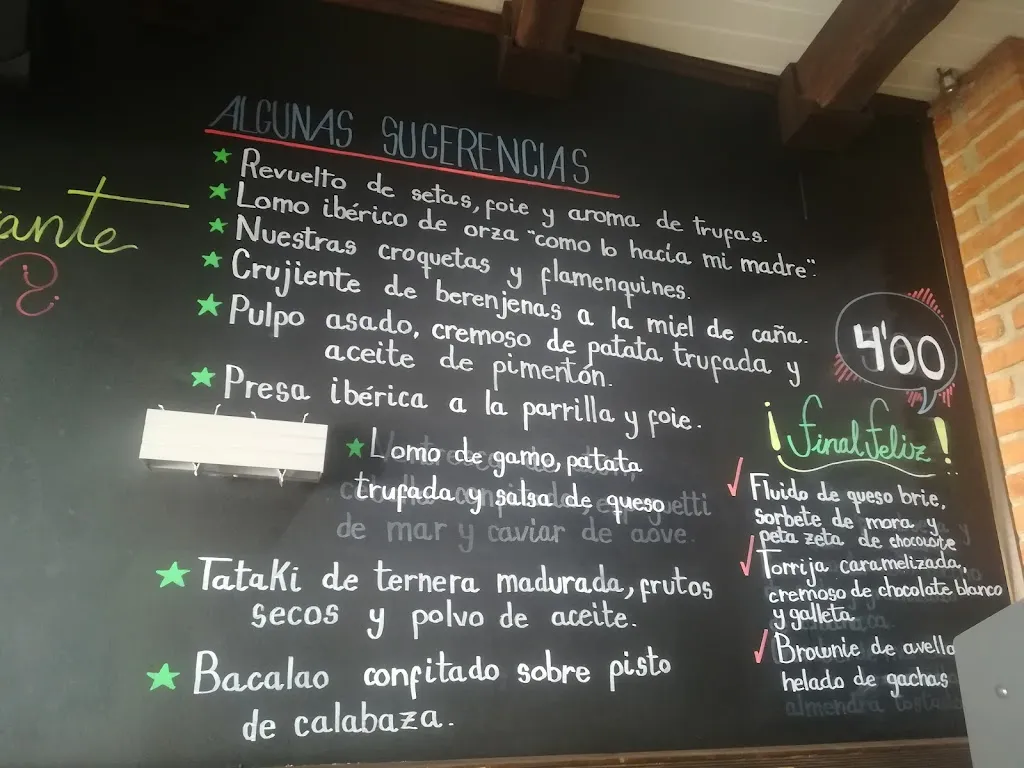 ALGUNAS SUGERENCIAS
★ Revuelto de setas, foie y aroma de trufas.
★ Lomo ibérico de orza "como lo hacía mi madre".
★ Nuestras croquetas y flamenquines.
★ Crujiente de berenjenas a la miel de caña.
★ Pulpo asado, cremoso de patata trufada y
aceite de pimentón.
★ Presa ibérica a la parrilla y foie.
★ Lomo de gamo, patata
trufada y salsa de queso
de mar y caviar de aove.
★ Tataki de ternera madurada, frutos
secos y polvo de aceite.
★ Bacalao confitado sobre pisto
de calabaza.
4'00
¡Final Feliz!
✓ Fluido de queso brie,
sorbete de mora y
peta zeta de chocolate
✓ Torrija caramelizada,
cremoso de chocolate blanco
y galleta
✓ Brownie de avella
helado de gachas
almendra